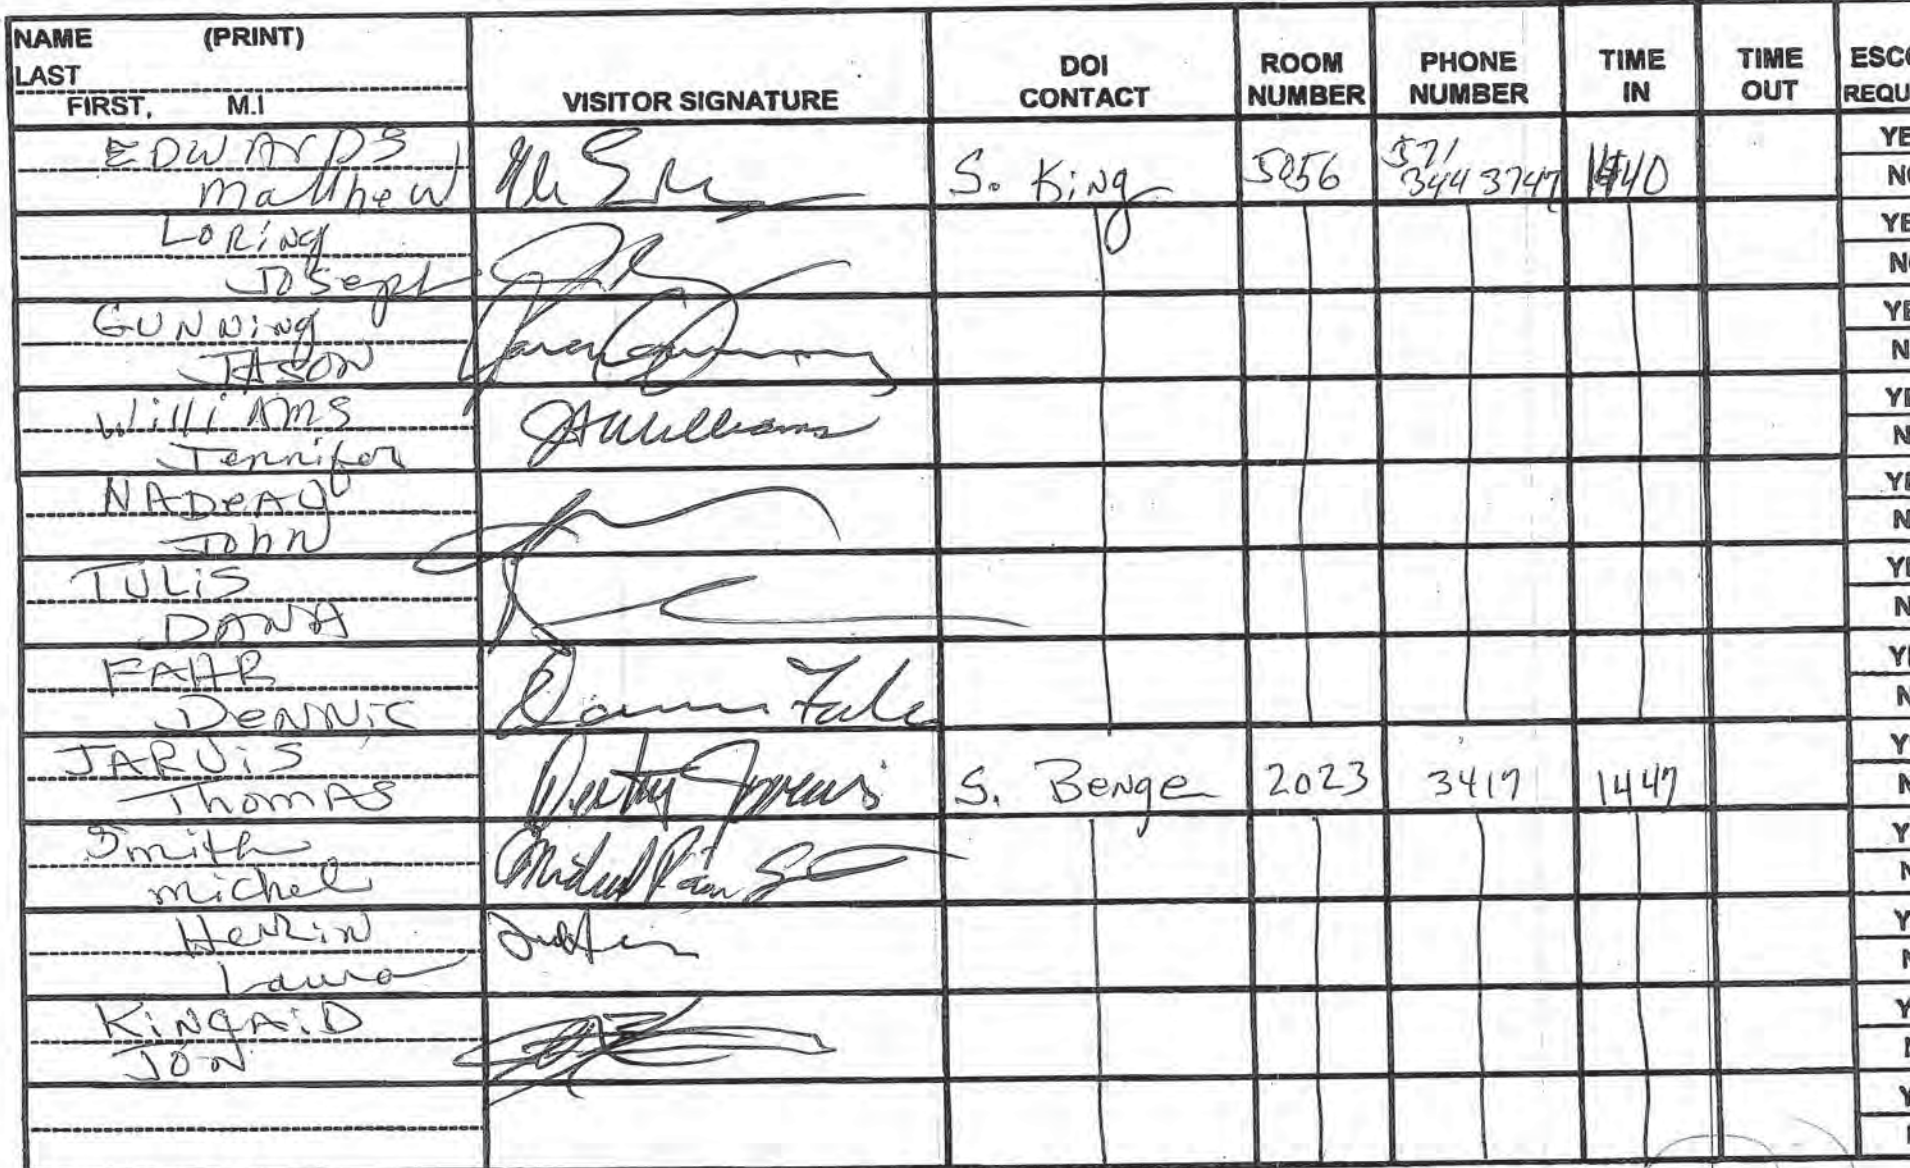 NAME (PRINT)
LAST
FIRST, M.I
VISITOR SIGNATURE
DOI
CONTACT
ROOM
NUMBER
PHONE
NUMBER
TIME
IN
TIME
OUT
ESCO
REQU
EDWARDS
Matthew
S. King
5056
571
344 3747
1440
YE
NO
LORing
Joseph
YE
NO
GUNNing
JASON
YE
N
Williams
JAWilliams
Jennifer
YE
N
NADeAU
John
YE
N
TULiS
DANA
YE
N
FAHR
DeNNiS
YE
N
JARViS
Thomas
S. Benge
2023
3417
1447
Y
N
Smith
michel
Y
N
Henkin
Laura
Y
N
KiNCAiD
JON
Y
N
Y